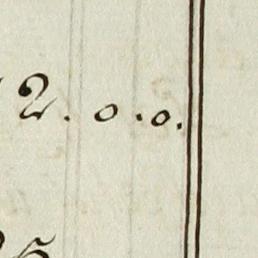 2. o. o.